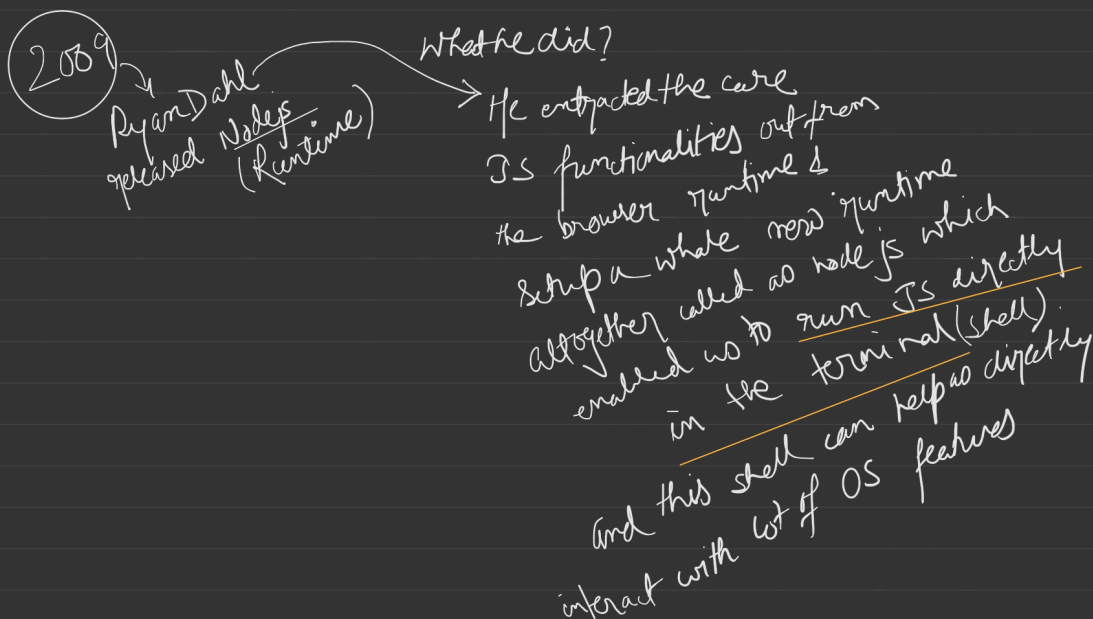 2009
Ryan Dahl
released Nodejs
(Runtime)
What he did?
He extracted the core
JS functionalities out from
the browser runtime &
setup a whole new runtime
altogether called as node js which
enabled us to run JS directly
in the terminal (shell).
and this shell can help us directly
interact with lot of OS features